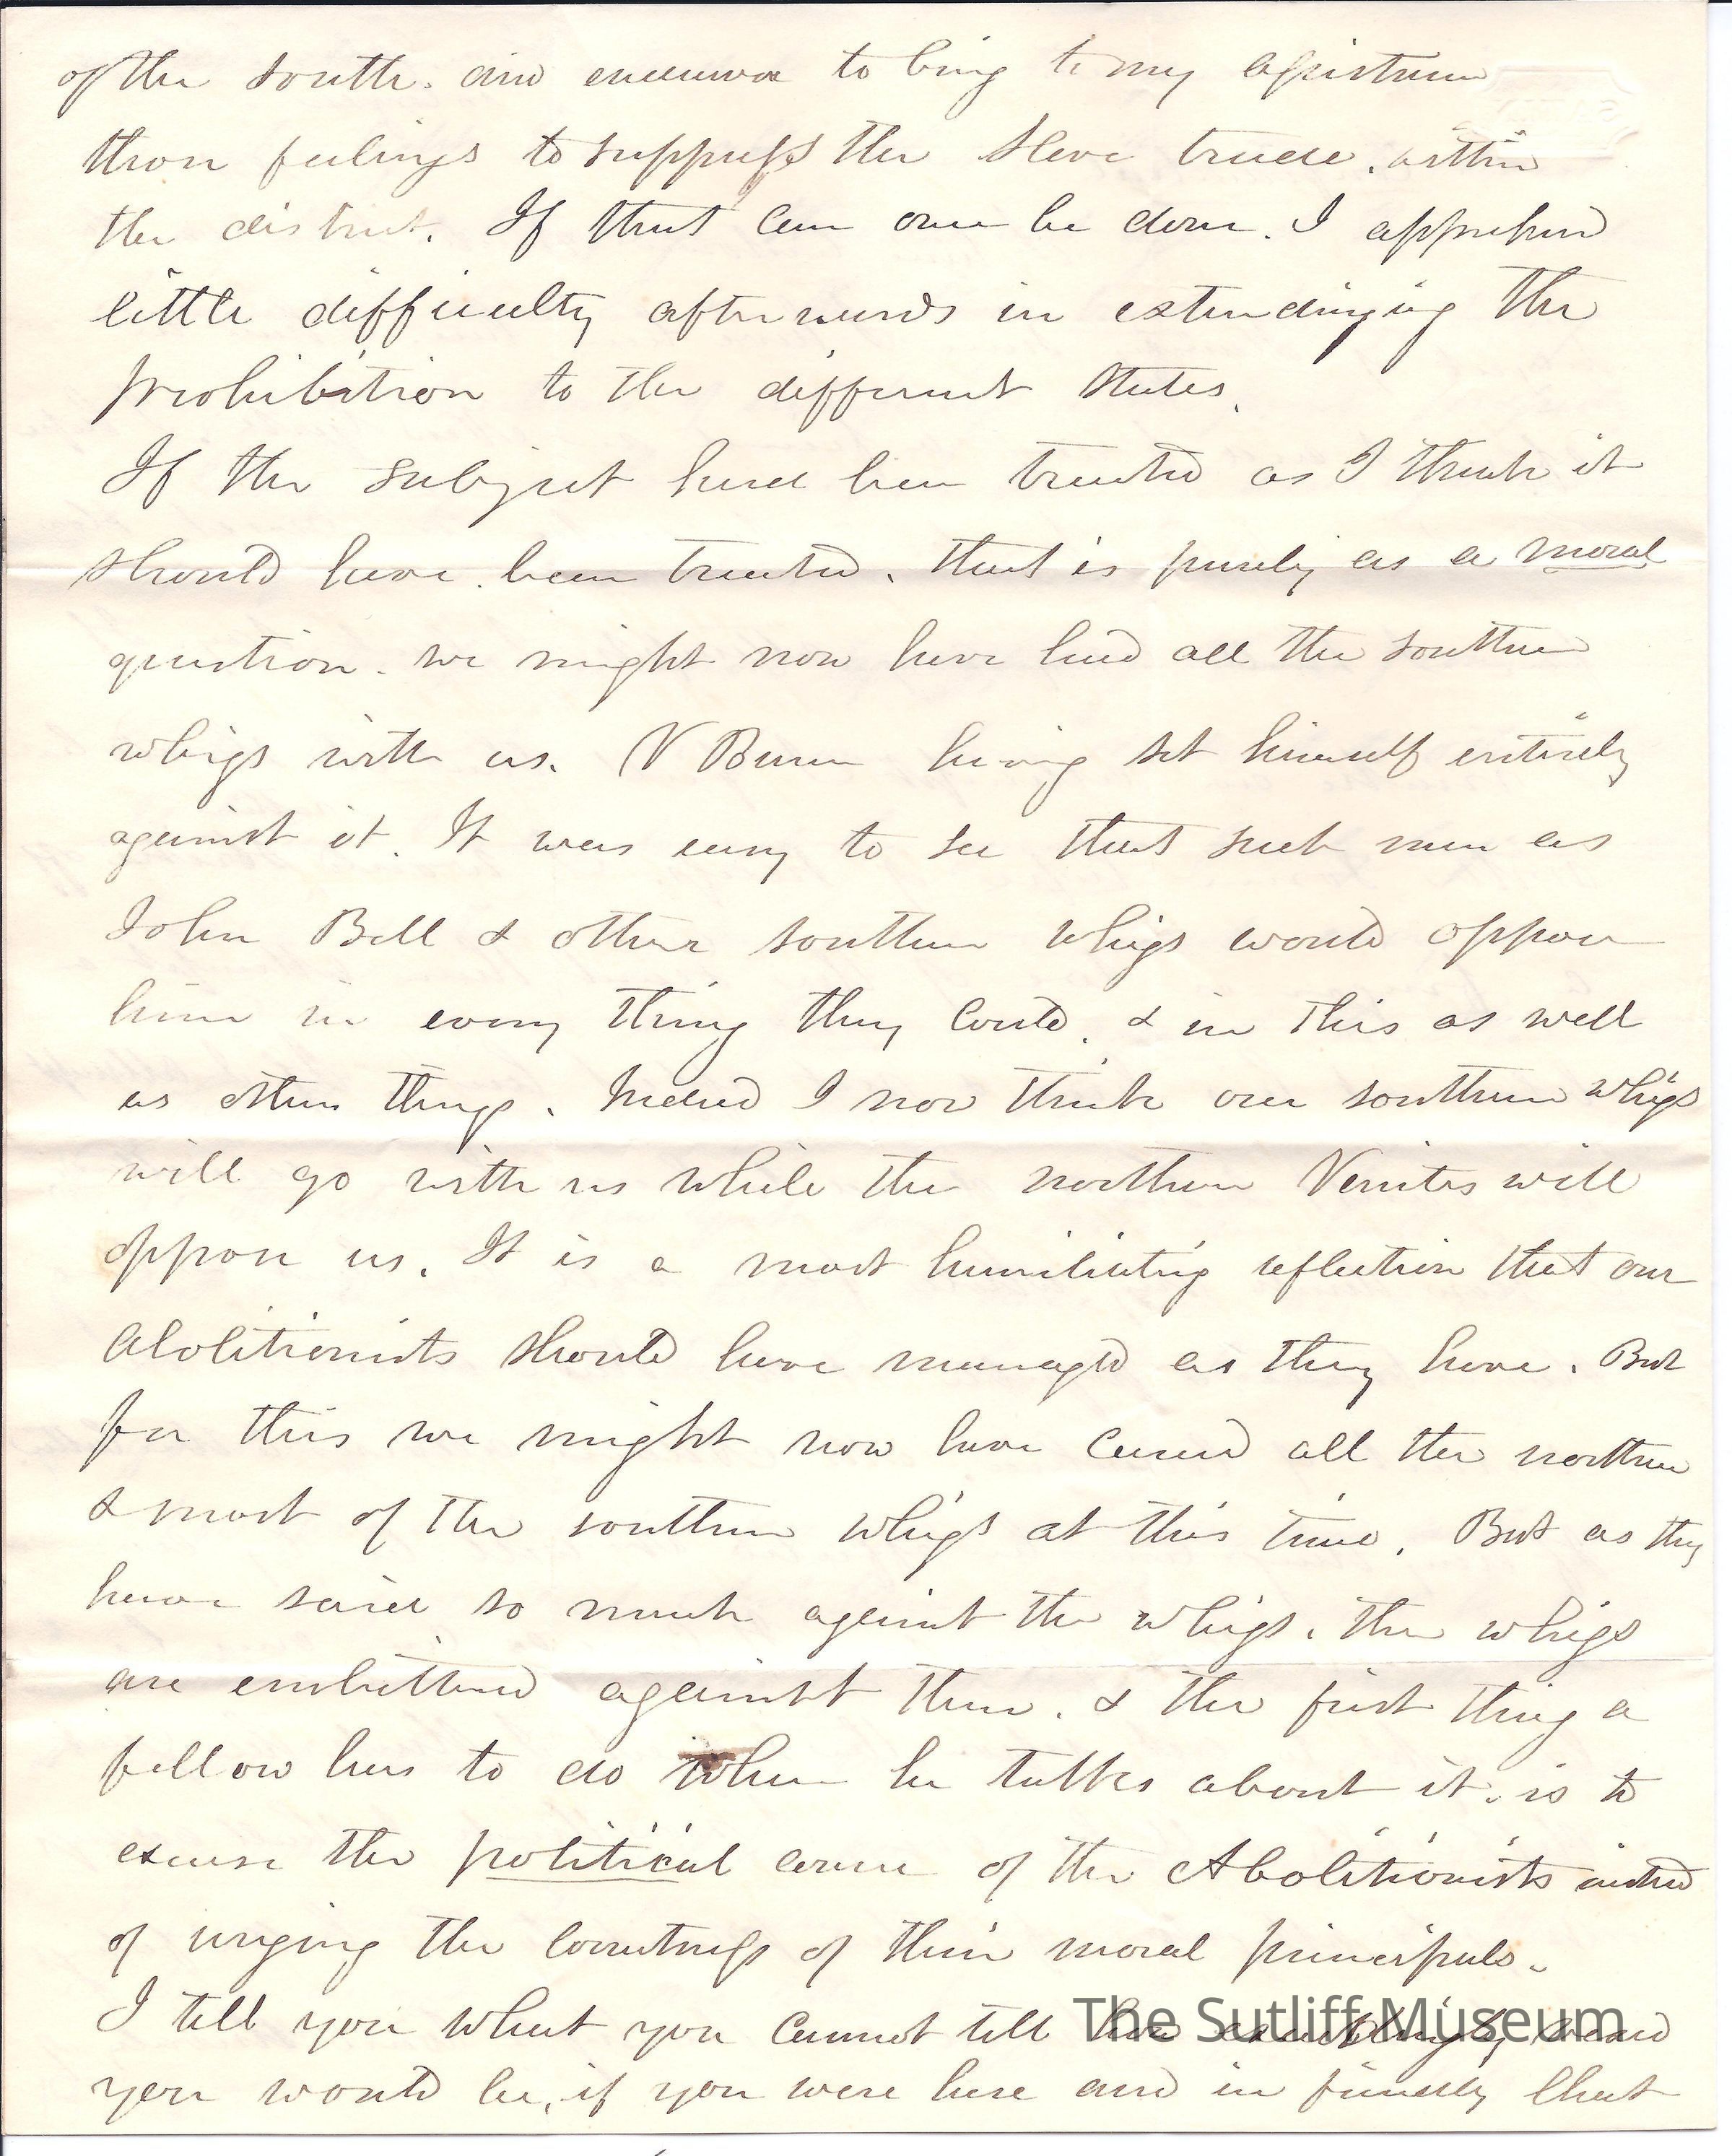 of the south. and endeavor to bring to my assistance
those feelings to suppress the slave trade. within
the district. If that can once be done. I apprehend
little difficulty afterwards in extendinging the
prohibition to the different States.
If the subject had been treated as I think it
should have been treated. that is purely as a moral
question. we might now have had all the southern
whigs with us. V Buren having set himself entirely
against it. It was easy to see that such men as
John Bell & other southern whigs would oppose
him in every thing they could. & in this as well
as other things. Indeed I now think our southern whigs
will go with us while the northern Vanites will
oppose us. It is a most humiliating reflection that our
Abolitionists should have managed as they have. But
for this we might now have carried all the northern
& most of the southern whigs at this time. But as they
have said so much against the whigs. the whigs
are embittered against them. & the first thing a
fellow has to do when he talks about it. is to
excuse the political course of the Abolitionists instead
of urging the correctness of their moral principals.
I tell you what you cannot tell how exceedingly
you would be, if you were here and in friendly chat
The Sutliff Museum